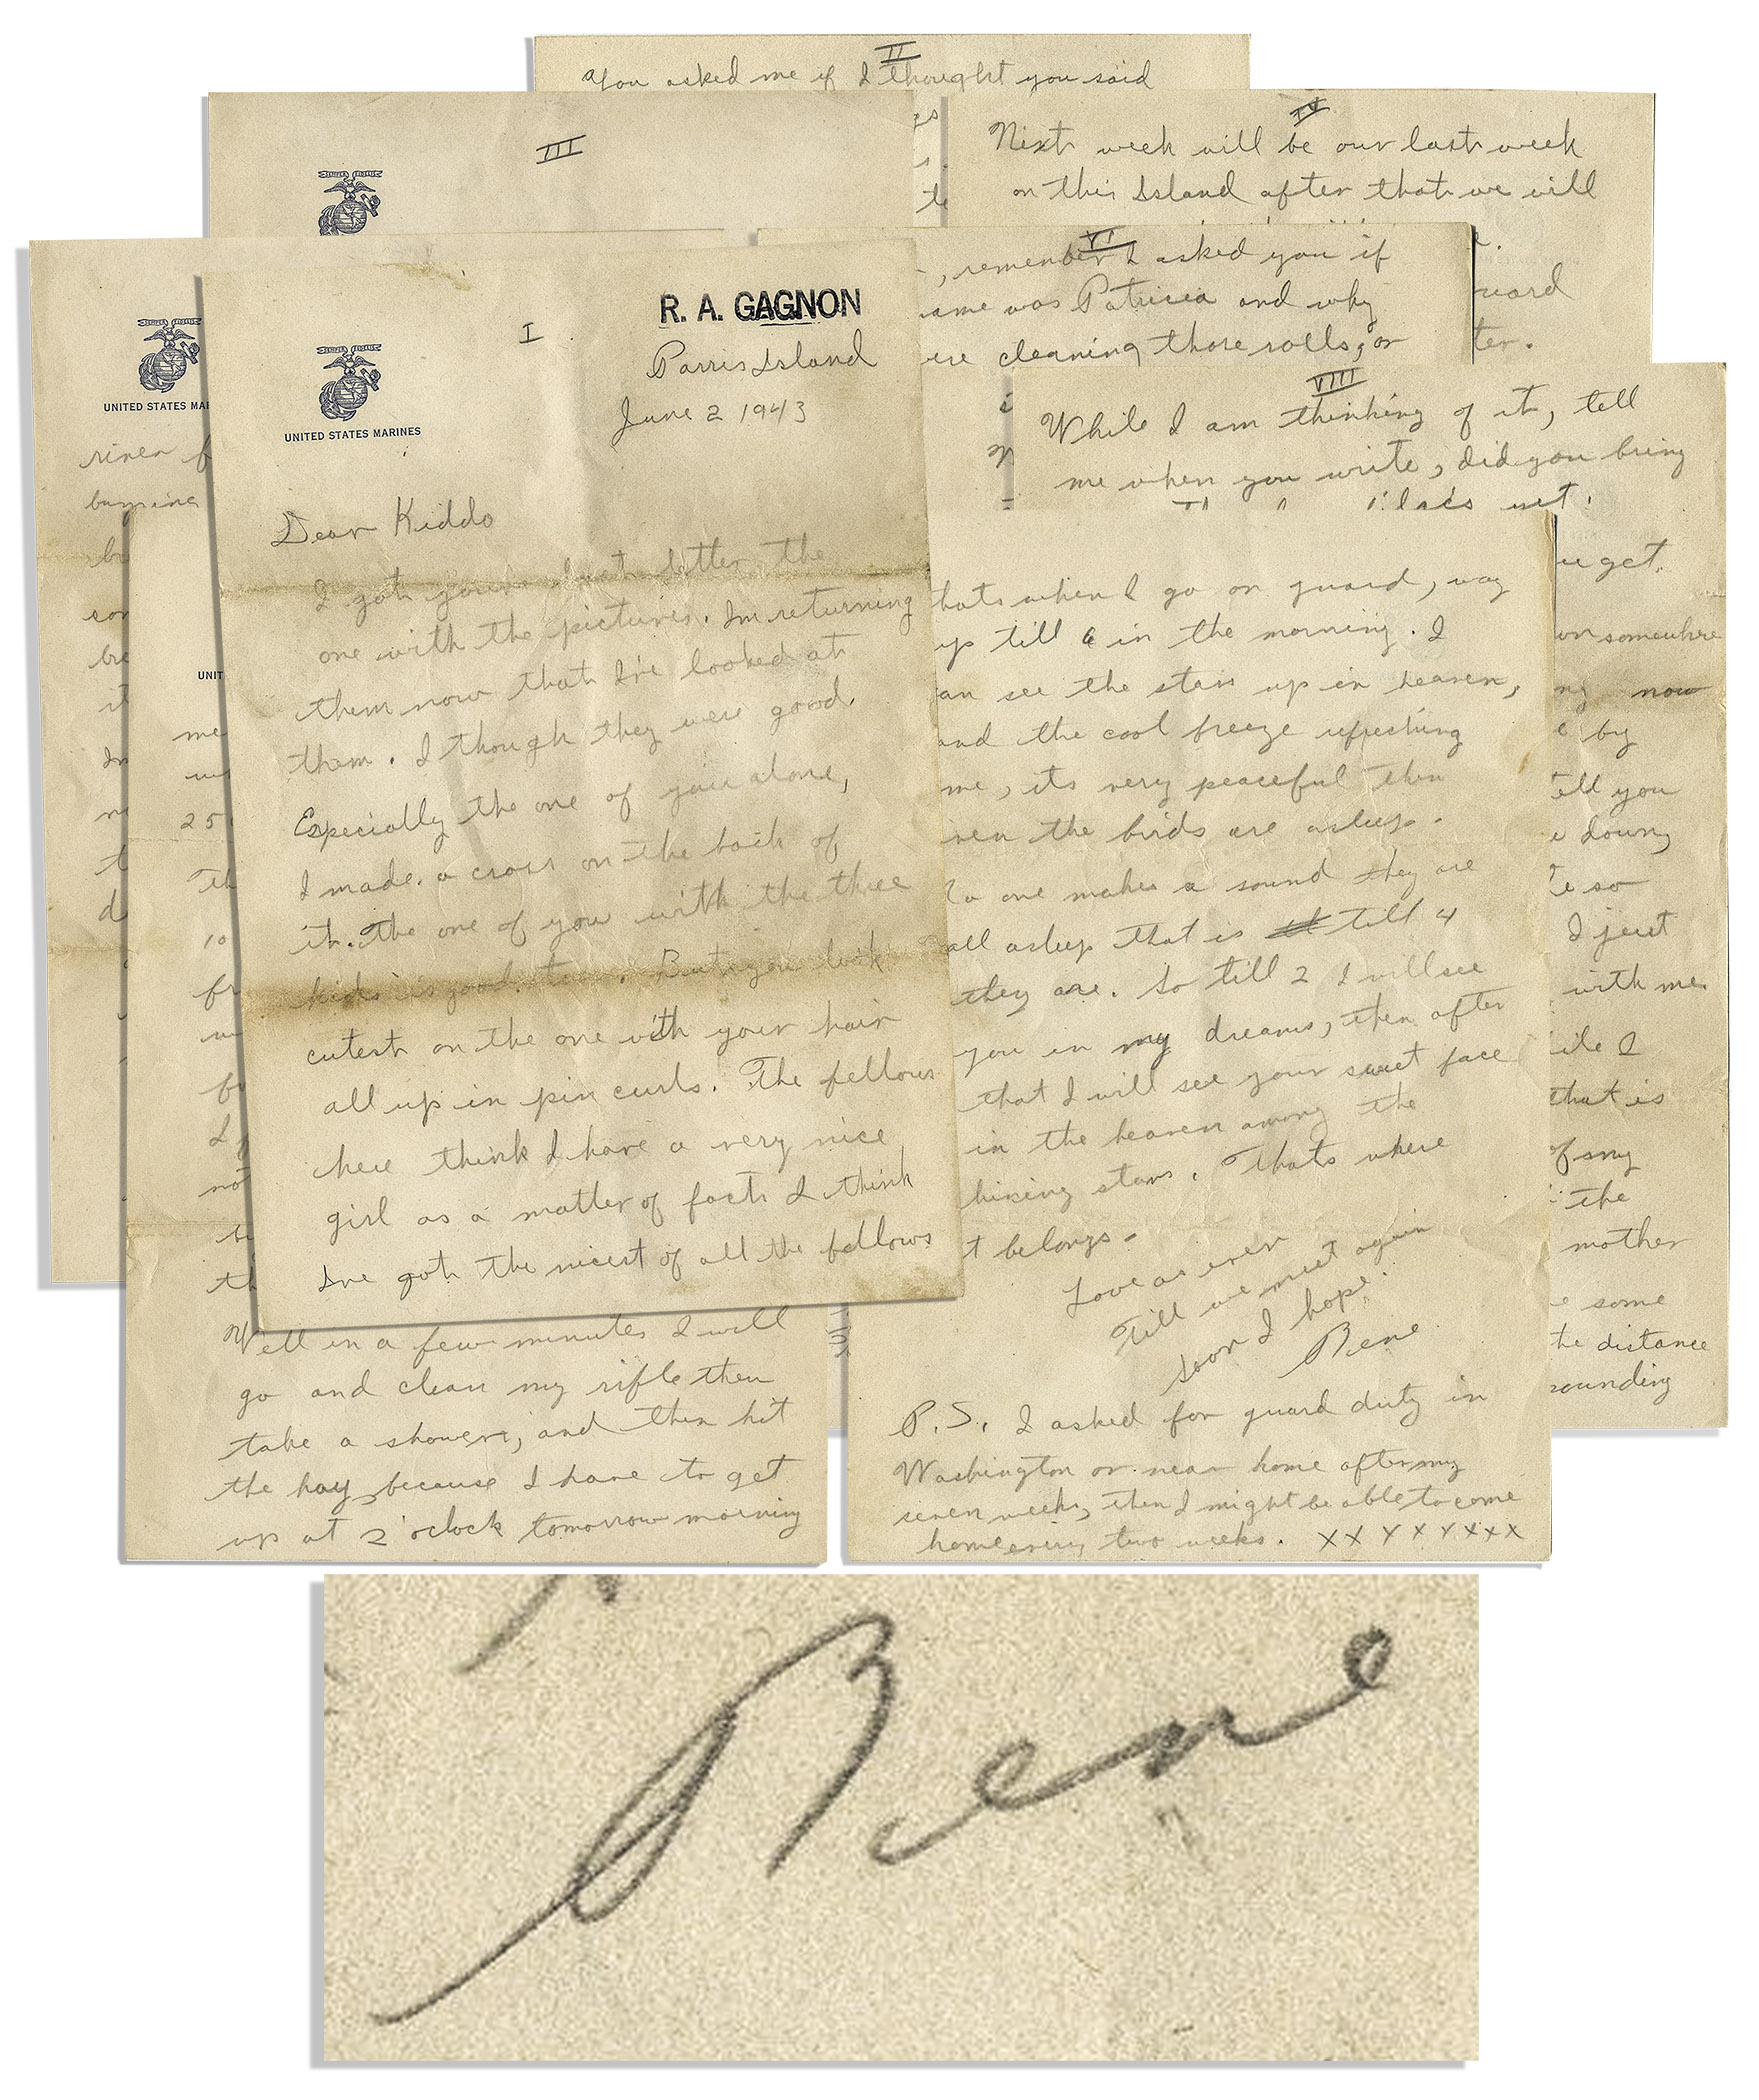 II
You asked me if I thought you said
III
IV
Next week will be our last week
on this Island after that we will
guard
VI
, remember I asked you if
name was Patricia and why
cleaning those rolls, or
VIII
While I am thinking of it, tell
me when you write, did you bring
yet.
get.
somewhere
now
by
tell you
down,
so
I just
with me.
I
that is
of my
the
mother
some
the distance
UNITED STATES MA
UNIT
25
10
R. A. GAGNON
I
Parris Island
June 2 1943
UNITED STATES MARINES
Dear Kiddo
I got your last letter the
one with the pictures. Im returning
them now that I've looked at
them. I though they were good.
Especially the one of you alone,
I made a cross on the back of
it. The one of you with the three
kids is good too. But you look
cutest on the one with your hair
all up in pin curls. The fellows
here think I have a very nice
girl as a matter of fact I think
Ive got the nicest of all the fellows
Well in a few minutes I will
go and clean my rifle then
take a shower, and then hit
the hay because I have to get
up at 2 o'clock tomorrow morning
thats when I go on guard, way
up till 6 in the morning. I
can see the stars up in heaven,
and the cool breeze refreshing
me, its very peaceful then
even the birds are asleep.
No one makes a sound they are
all asleep that is till 4
they are. So till 2 I will see
you in my dreams, then after
that I will see your sweet face
in the heaven among the
shining stars. Thats where
it belongs.
Love as ever
Till we meet again
soon I hope.
Rene
P.S. I asked for guard duty in
Washington or near home after my
seven weeks, then I might be able to come
home every two weeks. XXXXXXXX
Rene